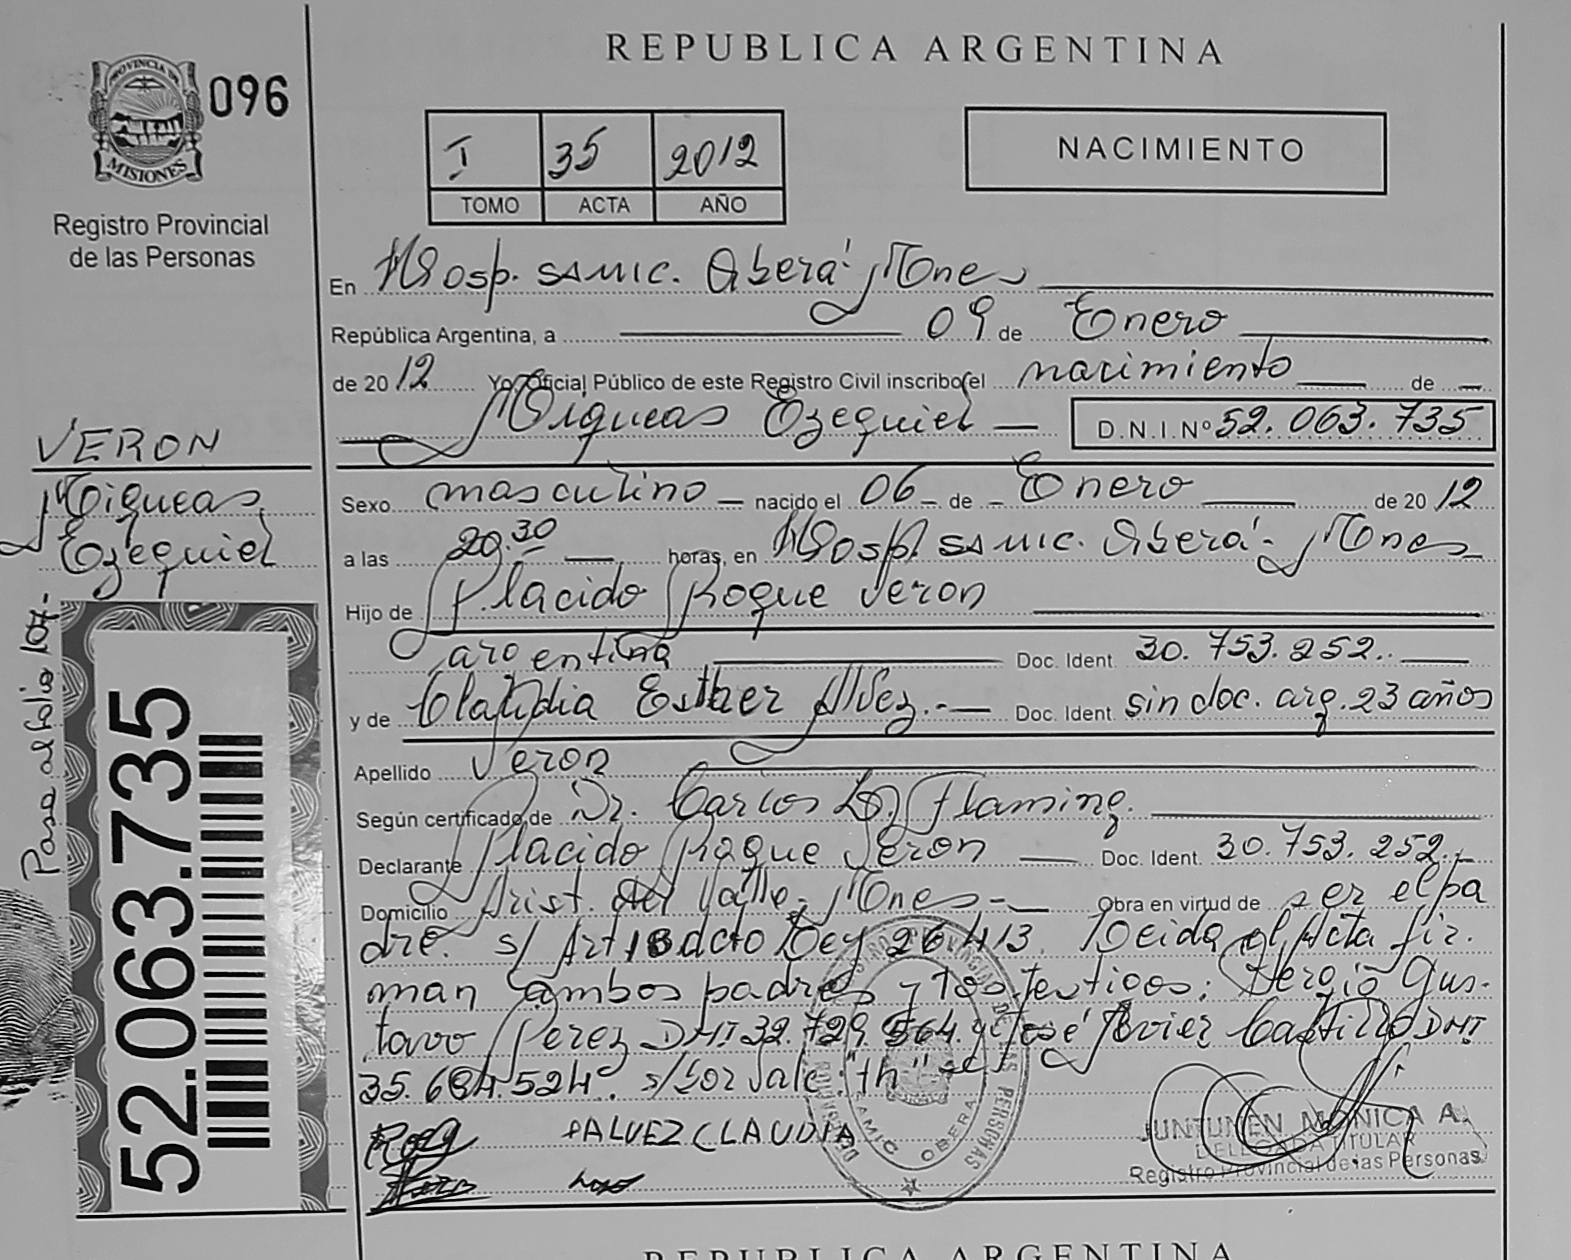 REPUBLICA ARGENTINA
PROVINCIA DE
MISIONES
096
Registro Provincial
de las Personas
I 35 2012
TOMO ACTA AÑO
NACIMIENTO
En Hosp. SAMIC. Oberá Mnes
República Argentina, a 09 de Enero
de 2012 Yo, Oficial Público de este Registro Civil inscribo el nacimiento de
Miqueas Ezequiel D.N.I.Nº 52.063.735
VERON
Miqueas
Ezequiel
Pasa al folio 107-
52.063.735
Sexo masculino nacido el 06 de Enero de 2012
a las 20.30 horas, en Hosp. SAMIC. Oberá- Mnes
Hijo de Placido Roque Veron
argentina Doc. Ident. 30.753.252.
y de Claudia Esther Alvez.- Doc. Ident. sin doc. arg. 23 años
Apellido Veron
Según certificado de Dr. Carlos D. Fleming.
Declarante Placido Roque Veron Doc. Ident. 30.753.252.-
Domicilio Arist. del Valle- Mnes- Obra en virtud de ser el pa
dre. s/ Art 18 dcto Ley 26.413. Leida el Acta fir.
man ambos padres y los testigos: Sergio Gus.
tavo Perez DNI 32.729.564. y José Javier Castillo DNI
35.684.524. s/bor vale: "th"
ALVEZ CLAUDIA
SAMIC OBERA
JUNTUNEN MONICA A.
DELEGADA TITULAR
Registro Provincial de las Personas
REPUBLICA ARGENTINA